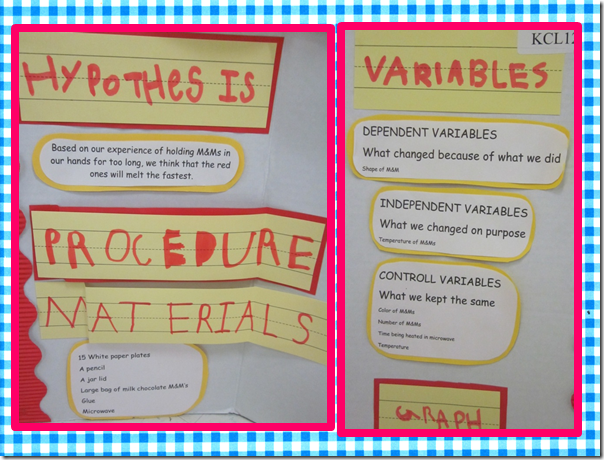 HYPOTHESIS
Based on our experience of holding M&Ms in
our hands for too long, we think that the red
ones will melt the fastest.
PROCEDURE
MATERIALS
15 White paper plates
A pencil
A jar lid
Large bag of milk chocolate M&M's
Glue
Microwave
KCL12
VARIABLES
DEPENDENT VARIABLES
What changed because of what we did
Shape of M&M
INDEPENDENT VARIABLES
What we changed on purpose
Temperature of M&Ms
CONTROLL VARIABLES
What we kept the same
Color of M&Ms
Number of M&Ms
Time being heated in microwave
Temperature
GRAPH